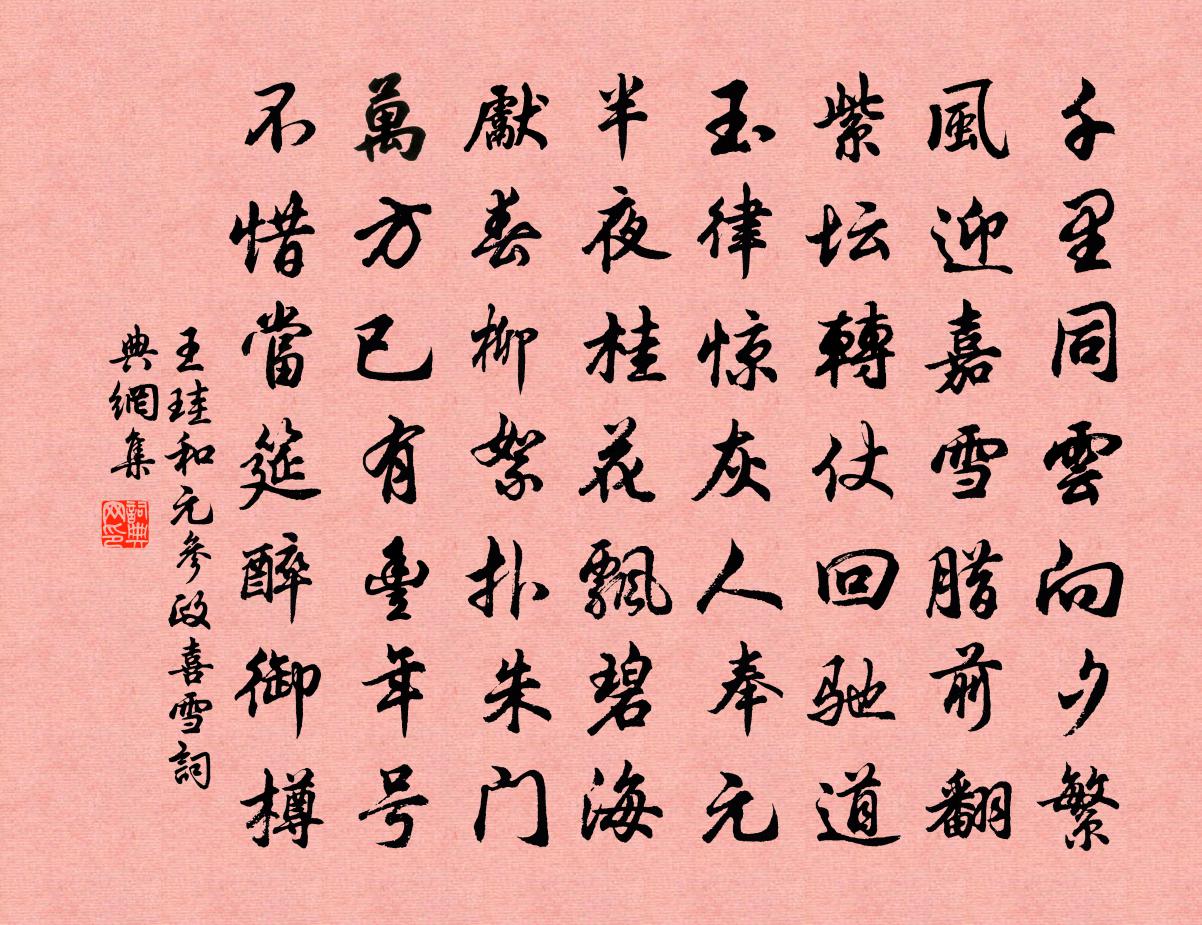 千里同雲向夕繁
風迎嘉雪腊前翻
紫坛轉仗回驰道
玉律惊灰人奉元
半夜桂花飄碧海
獻春柳絮扑朱门
萬方已有豊年号
不惜當筵醉御樽
王珪和元參政喜雪詞
典網集
詞典
网印